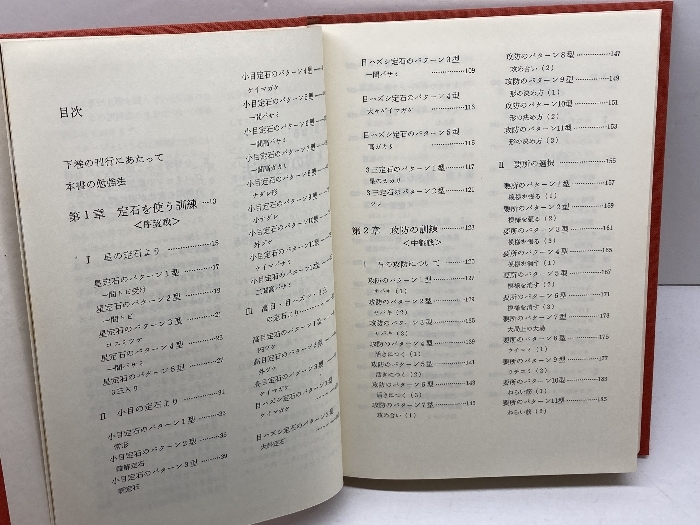 目次
下巻の刊行にあたって
本書の勉強法
第1章 定石を使う訓練 ……13
<序盤戦>
I 星の定石より ……15
星定石のパターン1型 ……17
一間トビ受け
星定石のパターン2型 ……19
一間トビ
星定石のパターン3型 ……21
コスミツケ
星定石のパターン4型 ……23
一間バサミ
星定石のパターン5型 ……27
3三入り
II 小目の定石より ……31
小目定石のパターン1型 ……33
小目定石のパターン2型 ……35
小目定石のパターン3型 ……39
小目定石のパターン4型
ケイマガケ
小目定石のパターン5型
一間バサミ
小目定石のパターン6型
一間高バサミ
一間高ガカリ
ナダレ形
小ゲイマ
外ツケ
ケイマバサミ
二間高バサミ
III 高目、目ハズシ、3三
の定石より
高目定石のパターン1型
内ツケ
高目定石のパターン2型
外ツケ
高目定石のパターン3型
ケイマガケ
目ハズシ定石のパターン1型
ケイマガケ
目ハズシ定石のパターン2型
大斜定石
目ハズシ定石のパターン3型
一間バサミ ……109
目ハズシ定石のパターン4型
大ゲイマガケ ……113
目ハズシ定石のパターン5型
高ガカリ ……115
3三定石のパターン1型 ……117
肩のカカリ
3三定石のパターン2型 ……121
第2章 攻防の訓練 ……123
<中盤戦>
I 石の攻防について ……125
攻防のパターン1型 ……127
サバキ(1)
攻防のパターン2型 ……129
サバキ(2)
攻防のパターン3型 ……133
サバキ(3)
攻防のパターン4型 ……139
活きにつく(1)
攻防のパターン5型 ……141
活きにつく(2)
攻防のパターン6型 ……143
活きにつく(3)
攻防のパターン7型 ……145
攻め合い(1)
攻防のパターン8型 ……147
攻め合い(2)
攻防のパターン9型 ……149
形の決め方(1)
攻防のパターン10型 ……151
形の決め方(2)
攻防のパターン11型 ……153
形の決め方(3)
II 要所の選択 ……155
要所のパターン1型 ……157
模様を張る(1)
要所のパターン2型 ……159
模様を張る(2)
要所のパターン3型 ……161
模様を張る(3)
要所のパターン4型 ……165
模様を消す(1)
要所のパターン5型 ……167
模様を消す(2)
要所のパターン6型 ……171
模様を消す(3)
要所のパターン7型 ……173
大場と大場
要所のパターン8型 ……175
ウチコミ(1)
要所のパターン9型 ……177
ウチコミ(2)
要所のパターン10型 ……183
ねらい筋(1)
要所のパターン11型 ……185
ねらい筋(2)